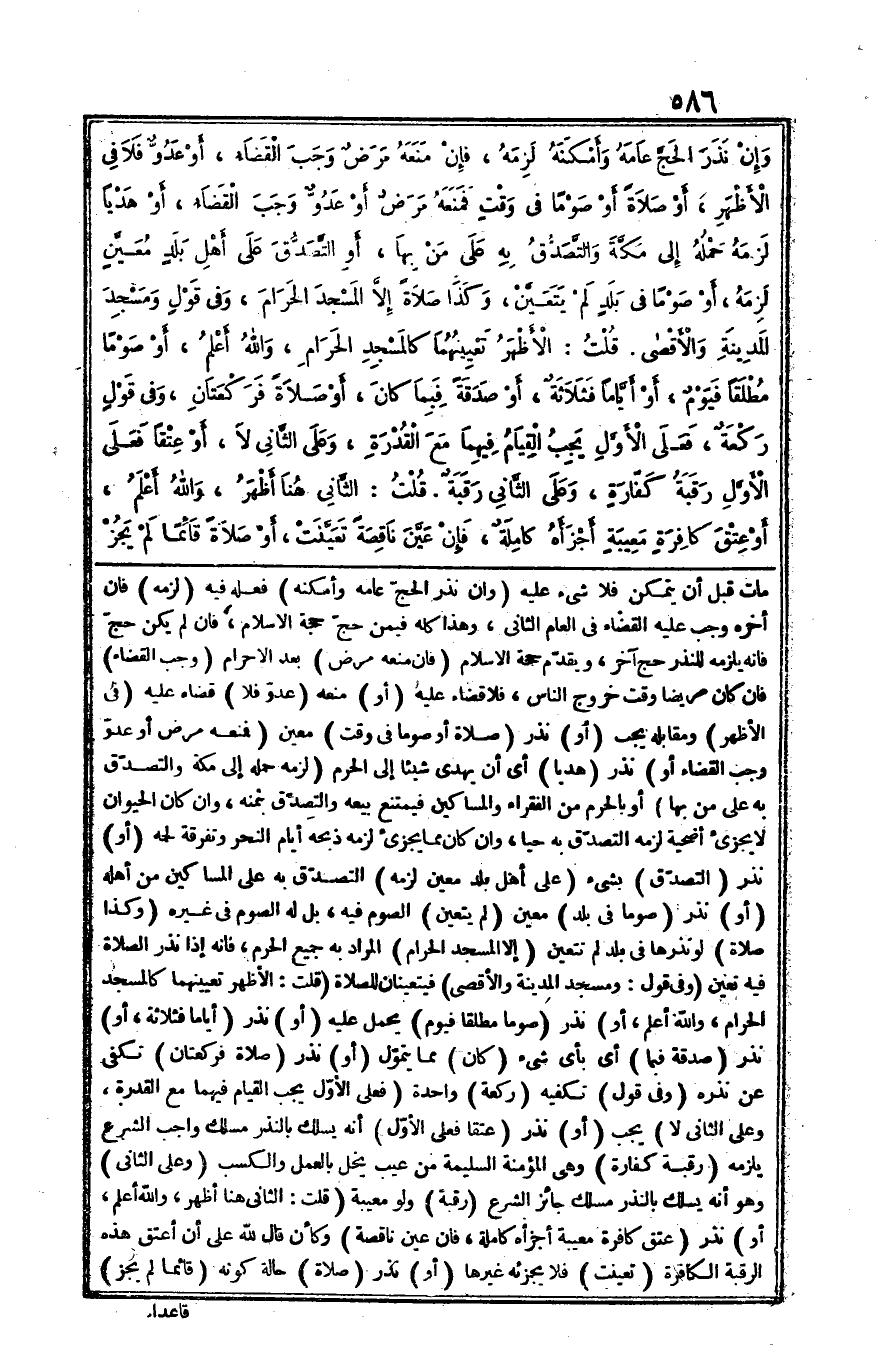 ٥٨٦
وَإِنْ نَذَرَ الْحَجَّ عَامَهُ وَأَمْكَنَهُ لَزِمَهُ ، فَإِنْ مَنَعَهُ مَرَضٌ وَجَبَ الْقَضَاءُ ، أَوْ عَدُوٌّ فَلَا فِي
الْأَظْهَرِ ، أَوْ صَلَاةً أَوْ صَوْمًا فِى وَقْتٍ فَمَنَعَهُ مَرَضٌ أَوْ عَدُوٌّ وَجَبَ الْقَضَاءُ ، أَوْ هَدْيًا
لَزِمَهُ حَمْلُهُ إِلَى مَكَّةَ وَالتَّصَدُّقُ بِهِ عَلَى مَنْ بِهَا ، أَوِ التَّصَدُّقَ عَلَى أَهْلِ بَلَدٍ مُعَيَّنٍ
لَزِمَهُ ، أَوْ صَوْمًا فِى بَلَدٍ لَمْ يَتَعَيَّنْ ، وَكَذَا صَلَاةً إِلَّا الْمَسْجِدَ الْحَرَامَ ، وَفِى قَوْلٍ وَمَسْجِدَ
الْمَدِينَةِ وَالْأَقْصَى . قُلْتُ : الْأَظْهَرُ تَعْيِينُهُمَا كَالْمَسْجِدِ الْحَرَامِ ، وَاللهُ أَعْلَمُ ، أَوْ صَوْمًا
مُطْلَقًا فَيَوْمٌ ، أَوْ أَيَّامًا فَثَلَاثَةٌ ، أَوْ صَدَقَةً فَبِمَا كَانَ ، أَوْ صَلَاةً فَرَكْعَتَانِ ، وَفِى قَوْلٍ
رَكْعَةٌ ، فَعَلَى الْأَوَّلِ يَجِبُ الْقِيَامُ فِيهِمَا مَعَ الْقُدْرَةِ ، وَعَلَى الثَّانِى لَا ، أَوْ عِتْقًا فَعَلَى
الْأَوَّلِ رَقَبَةُ كَفَّارَةٍ ، وَعَلَى الثَّانِى رَقَبَةٌ . قُلْتُ : الثَّانِى هُنَا أَظْهَرُ ، وَاللهُ أَعْلَمُ ،
أَوْ عِتْقَ كَافِرَةٍ مَعِيبَةٍ أَجْزَأَهُ كَامِلَةٌ ، فَإِنْ عَيَّنَ نَاقِصَةً تَعَيَّنَتْ ، أَوْ صَلَاةً قَائِمًا لَمْ يَجُزْ
مات قبل أن يتمكن فلا شىء عليه (وان نذر الحجّ عامه وأمكنه) فعله فيه (لزمه) فان
أخره وجب عليه القضاء فى العام الثانى ، وهذا كله فيمن حجّ حجة الاسلام ، فان لم يكن حجّ
فانه يلزمه للنذر حج آخر ، ويقدّم حجة الاسلام (فان منعه مرض) بعد الاحرام (وجب القضاء)
فان كان مريضا وقت خروج الناس ، فلا قضاء عليه (أو) منعه (عدوّ فلا) قضاء عليه (فى
الأظهر) ومقابله يجب (أو) نذر (صلاة أو صوما فى وقت) معين (فمنعه مرض أو عدوّ
وجب القضاء أو) نذر (هديا) أى أن يهدى شيئا إلى الحرم (لزمه حمله إلى مكة والتصدّق
به على من بها) أو بالحرم من الفقراء والمساكين فيمتنع بيعه والتصدّق بثمنه ، وان كان الحيوان
لا يجزئ أضحية لزمه التصدّق به حيا ، وان كان مما يجزئ لزمه ذبحه أيام النحر وتفرقة لحمه (أو)
نذر (التصدّق) بشىء (على أهل بلد معين لزمه) التصدّق به على المساكين من أهله
(أو) نذر (صوما فى بلد) معين (لم يتعين) الصوم فيه ، بل له الصوم فى غيره (وكذا
صلاة) لو نذرها فى بلد لم تتعين (إلا المسجد الحرام) المراد به جميع الحرم ، فانه إذا نذر الصلاة
فيه تعين (وفى قول : ومسجد المدينة والأقصى) فيتعينان للصلاة (قلت : الأظهر تعيينهما كالمسجد
الحرام ، والله أعلم ، أو) نذر (صوما مطلقا فيوم) يحمل عليه (أو) نذر (أياما فثلاثة ، أو)
نذر (صدقة فبما) أى بأى شىء (كان) مما يتموّل (أو) نذر (صلاة فركعتان) تكفى
عن نذره (وفى قول) تكفيه (ركعة) واحدة (فعلى الأوّل يجب القيام فيهما مع القدرة ،
وعلى الثانى لا) يجب (أو) نذر (عتقا فعلى الأوّل) أنه يسلك بالنذر مسلك واجب الشرع
يلزمه (رقبة كفارة) وهى المؤمنة السليمة من عيب يخل بالعمل والكسب (وعلى الثانى)
وهو أنه يسلك بالنذر مسلك جائز الشرع (رقبة) ولو معيبة (قلت : الثانى هنا أظهر ، والله أعلم ،
أو) نذر (عتق كافرة معيبة أجزأه كاملة ، فان عين ناقصة) وكأن قال لله على أن أعتق هذه
الرقبة الكافرة (تعينت) فلا يجزئه غيرها (أو) نذر (صلاة) حالة كونه (قائما لم يجز)
قاعدا.